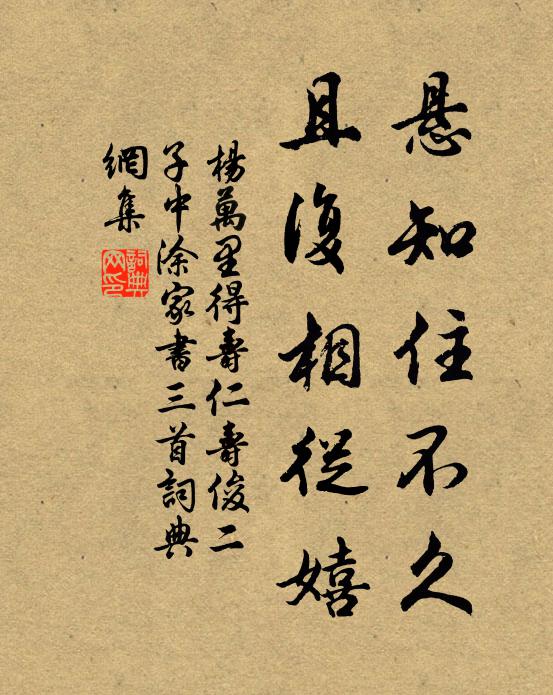 悬知住不久
且復相從嬉
楊萬里得壽仁壽俊二
子中涂家書三首詞典
網集
詞典
网印